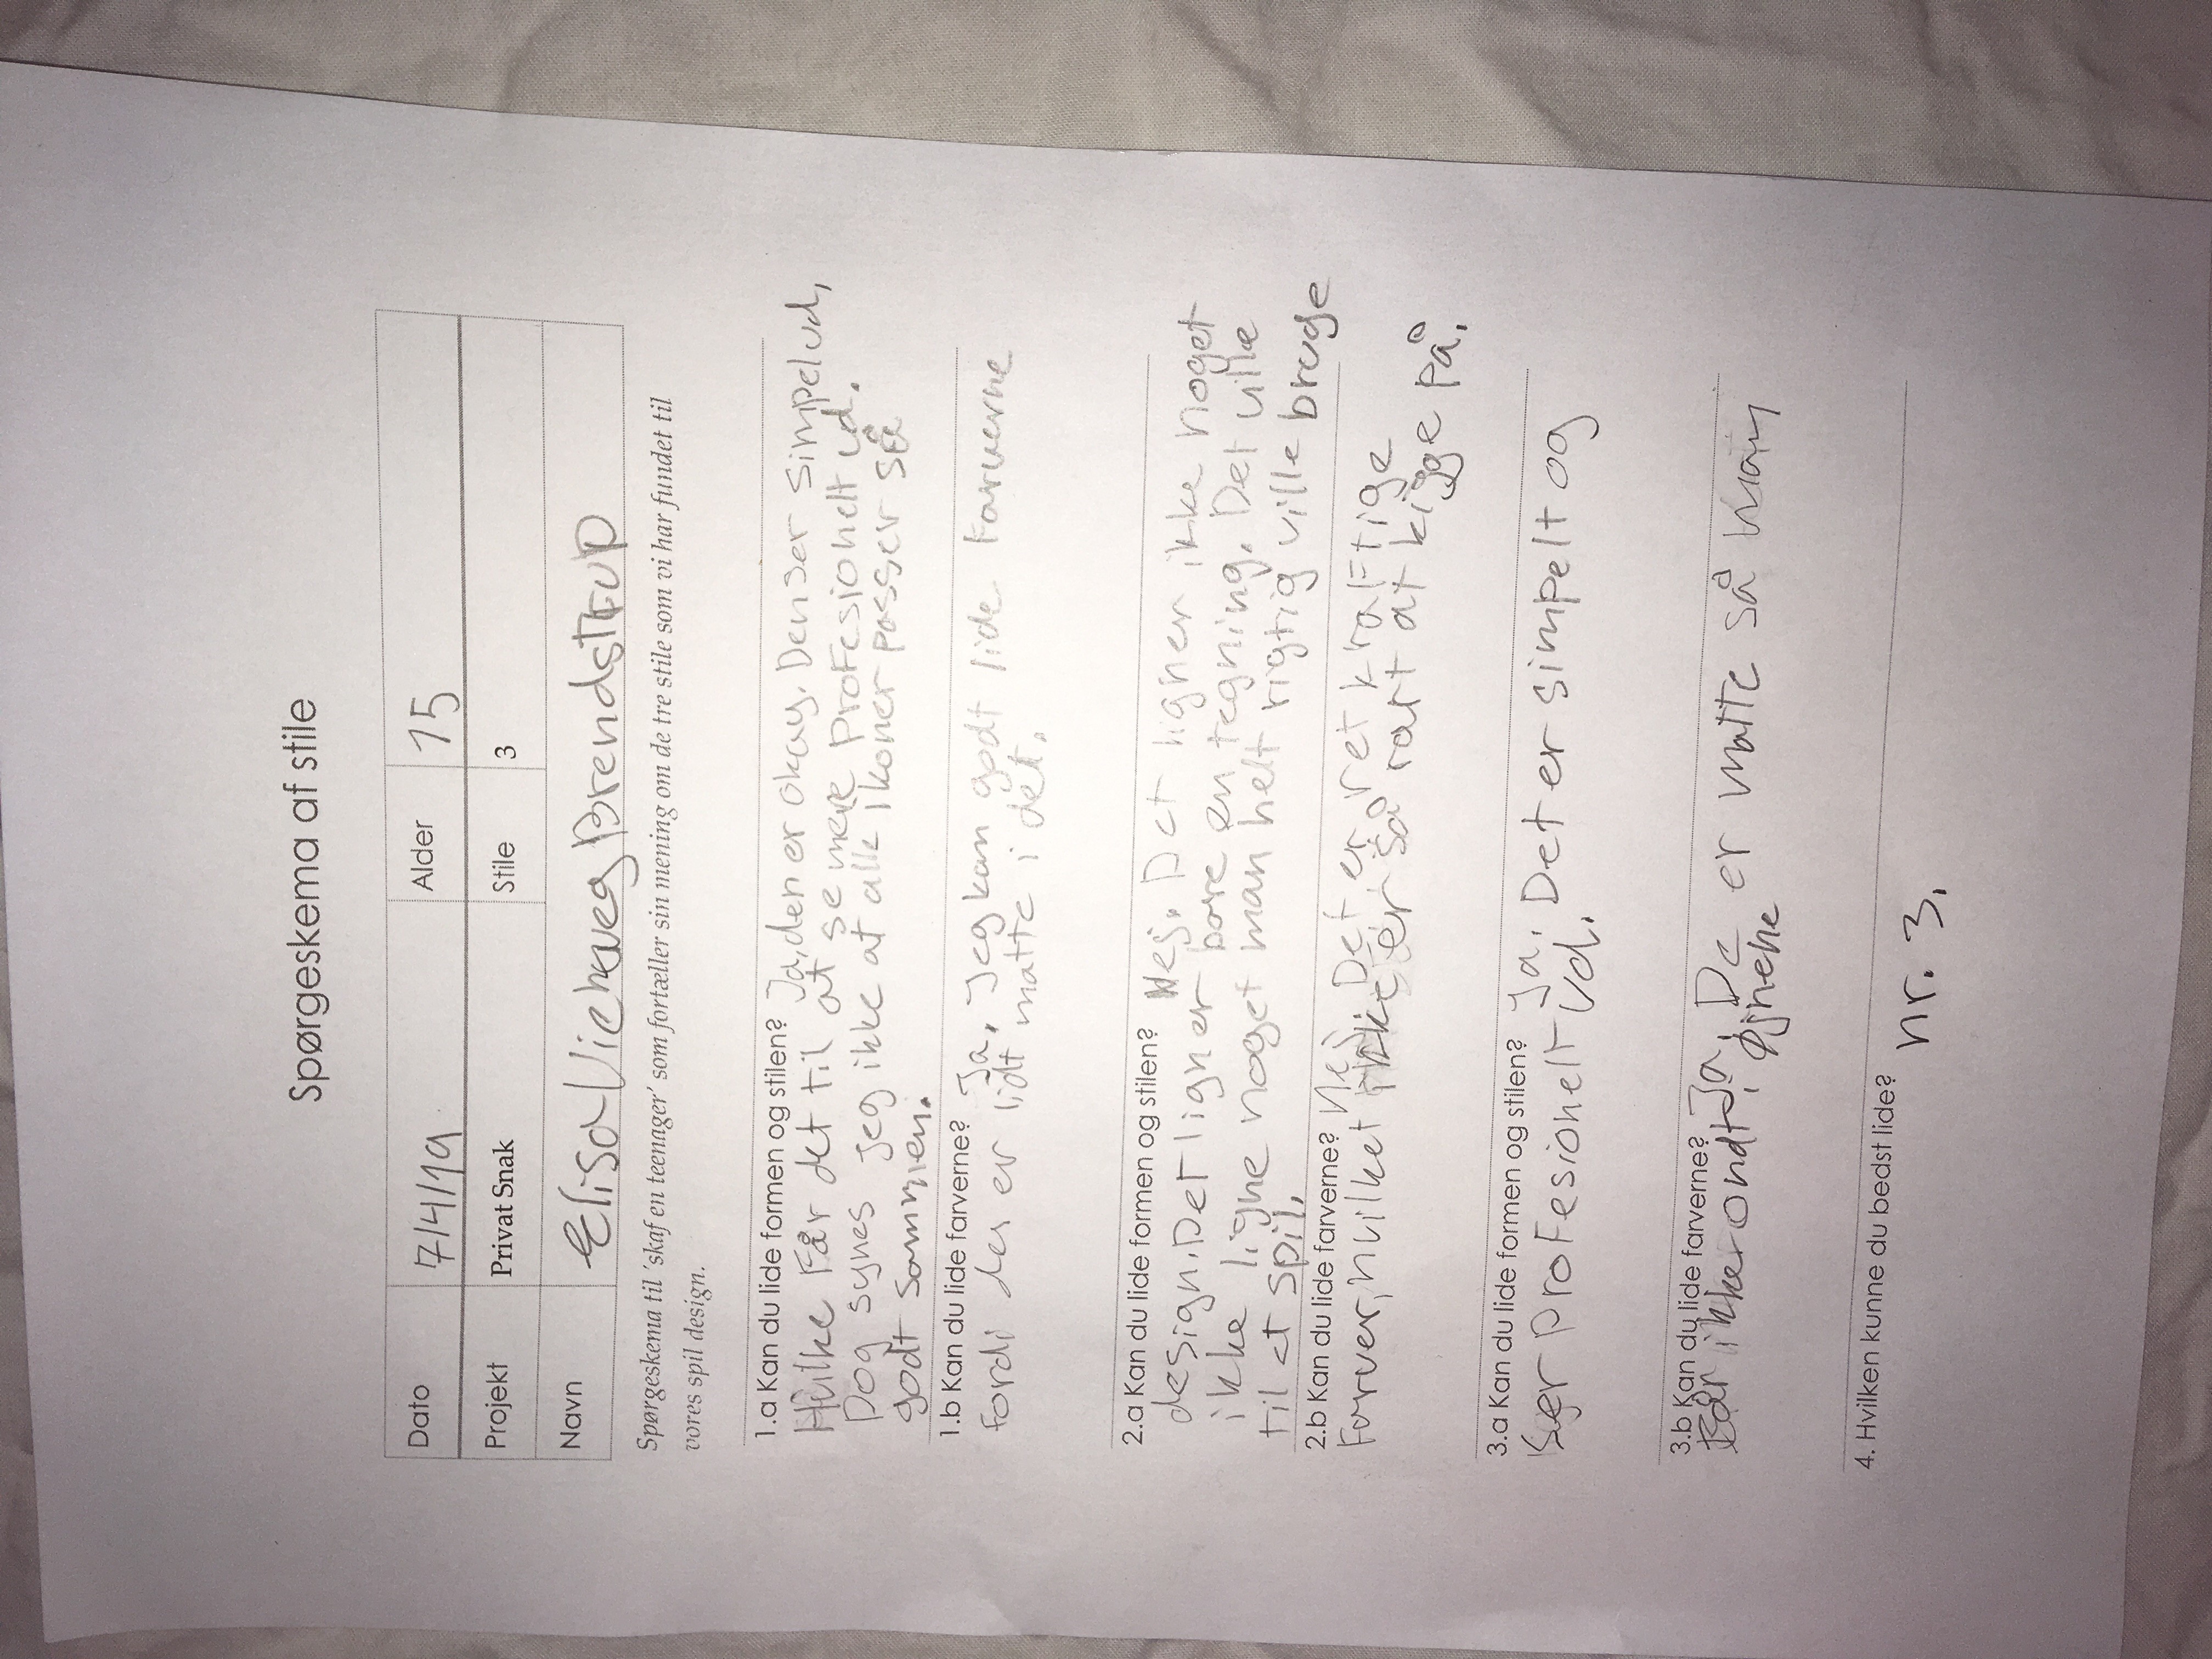 Spørgeskema af stile
Dato 7/4/19 Alder 15
Projekt Privat Snak Stile 3
Navn Elisa Viehweg Brendstrup
Spørgeskema til 'skaf en teenager' som fortæller sin mening om de tre stile som vi har fundet til
vores spil design.
1.a Kan du lide formen og stilen? Ja, den er okay. Den ser simpel ud,
Hvilke Får det til at se mere Profesionelt ud.
Dog synes jeg ikke at alle ikoner passer så
godt sammen.
1.b Kan du lide farverne? Ja. Jeg kan godt lide Farverne
fordi der er lidt matte i det.
2.a Kan du lide formen og stilen? Nej. Det ligner ikke noget
design. Det ligner bare en tegning. Det ville
ikke ligne noget man helt rigtig ville bruge
til et spil.
2.b Kan du lide farverne? Nej. Det er ret kraftige
Farver, hvilket ikke er så rart at kigge på.
3.a Kan du lide formen og stilen? Ja. Det er simpelt og
Ser Profesionelt ud.
3.b Kan du lide farverne? Ja. De er matte så man
Får ikker ondt i øjnene
4. Hvilken kunne du bedst lide?
nr. 3.